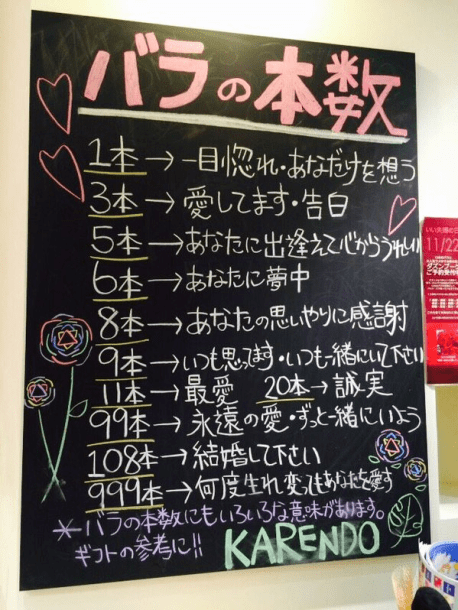 バラの本数
1本→一目惚れ・あなただけを想う
3本→愛してます・告白
5本→あなたに出逢えて心からうれしい
6本→あなたに夢中
8本→あなたの思いやりに感謝
9本→いつも思ってます・いつも一緒にいて下さい
11本→最愛 20本→誠実
99本→永遠の愛・ずっと一緒にいよう
108本→結婚して下さい
999本→何度生れ変ってもあなたを愛す
*バラの本数にもいろいろな意味があります。
ギフトの参考に!!
KARENDO
いい夫婦の日
11/22